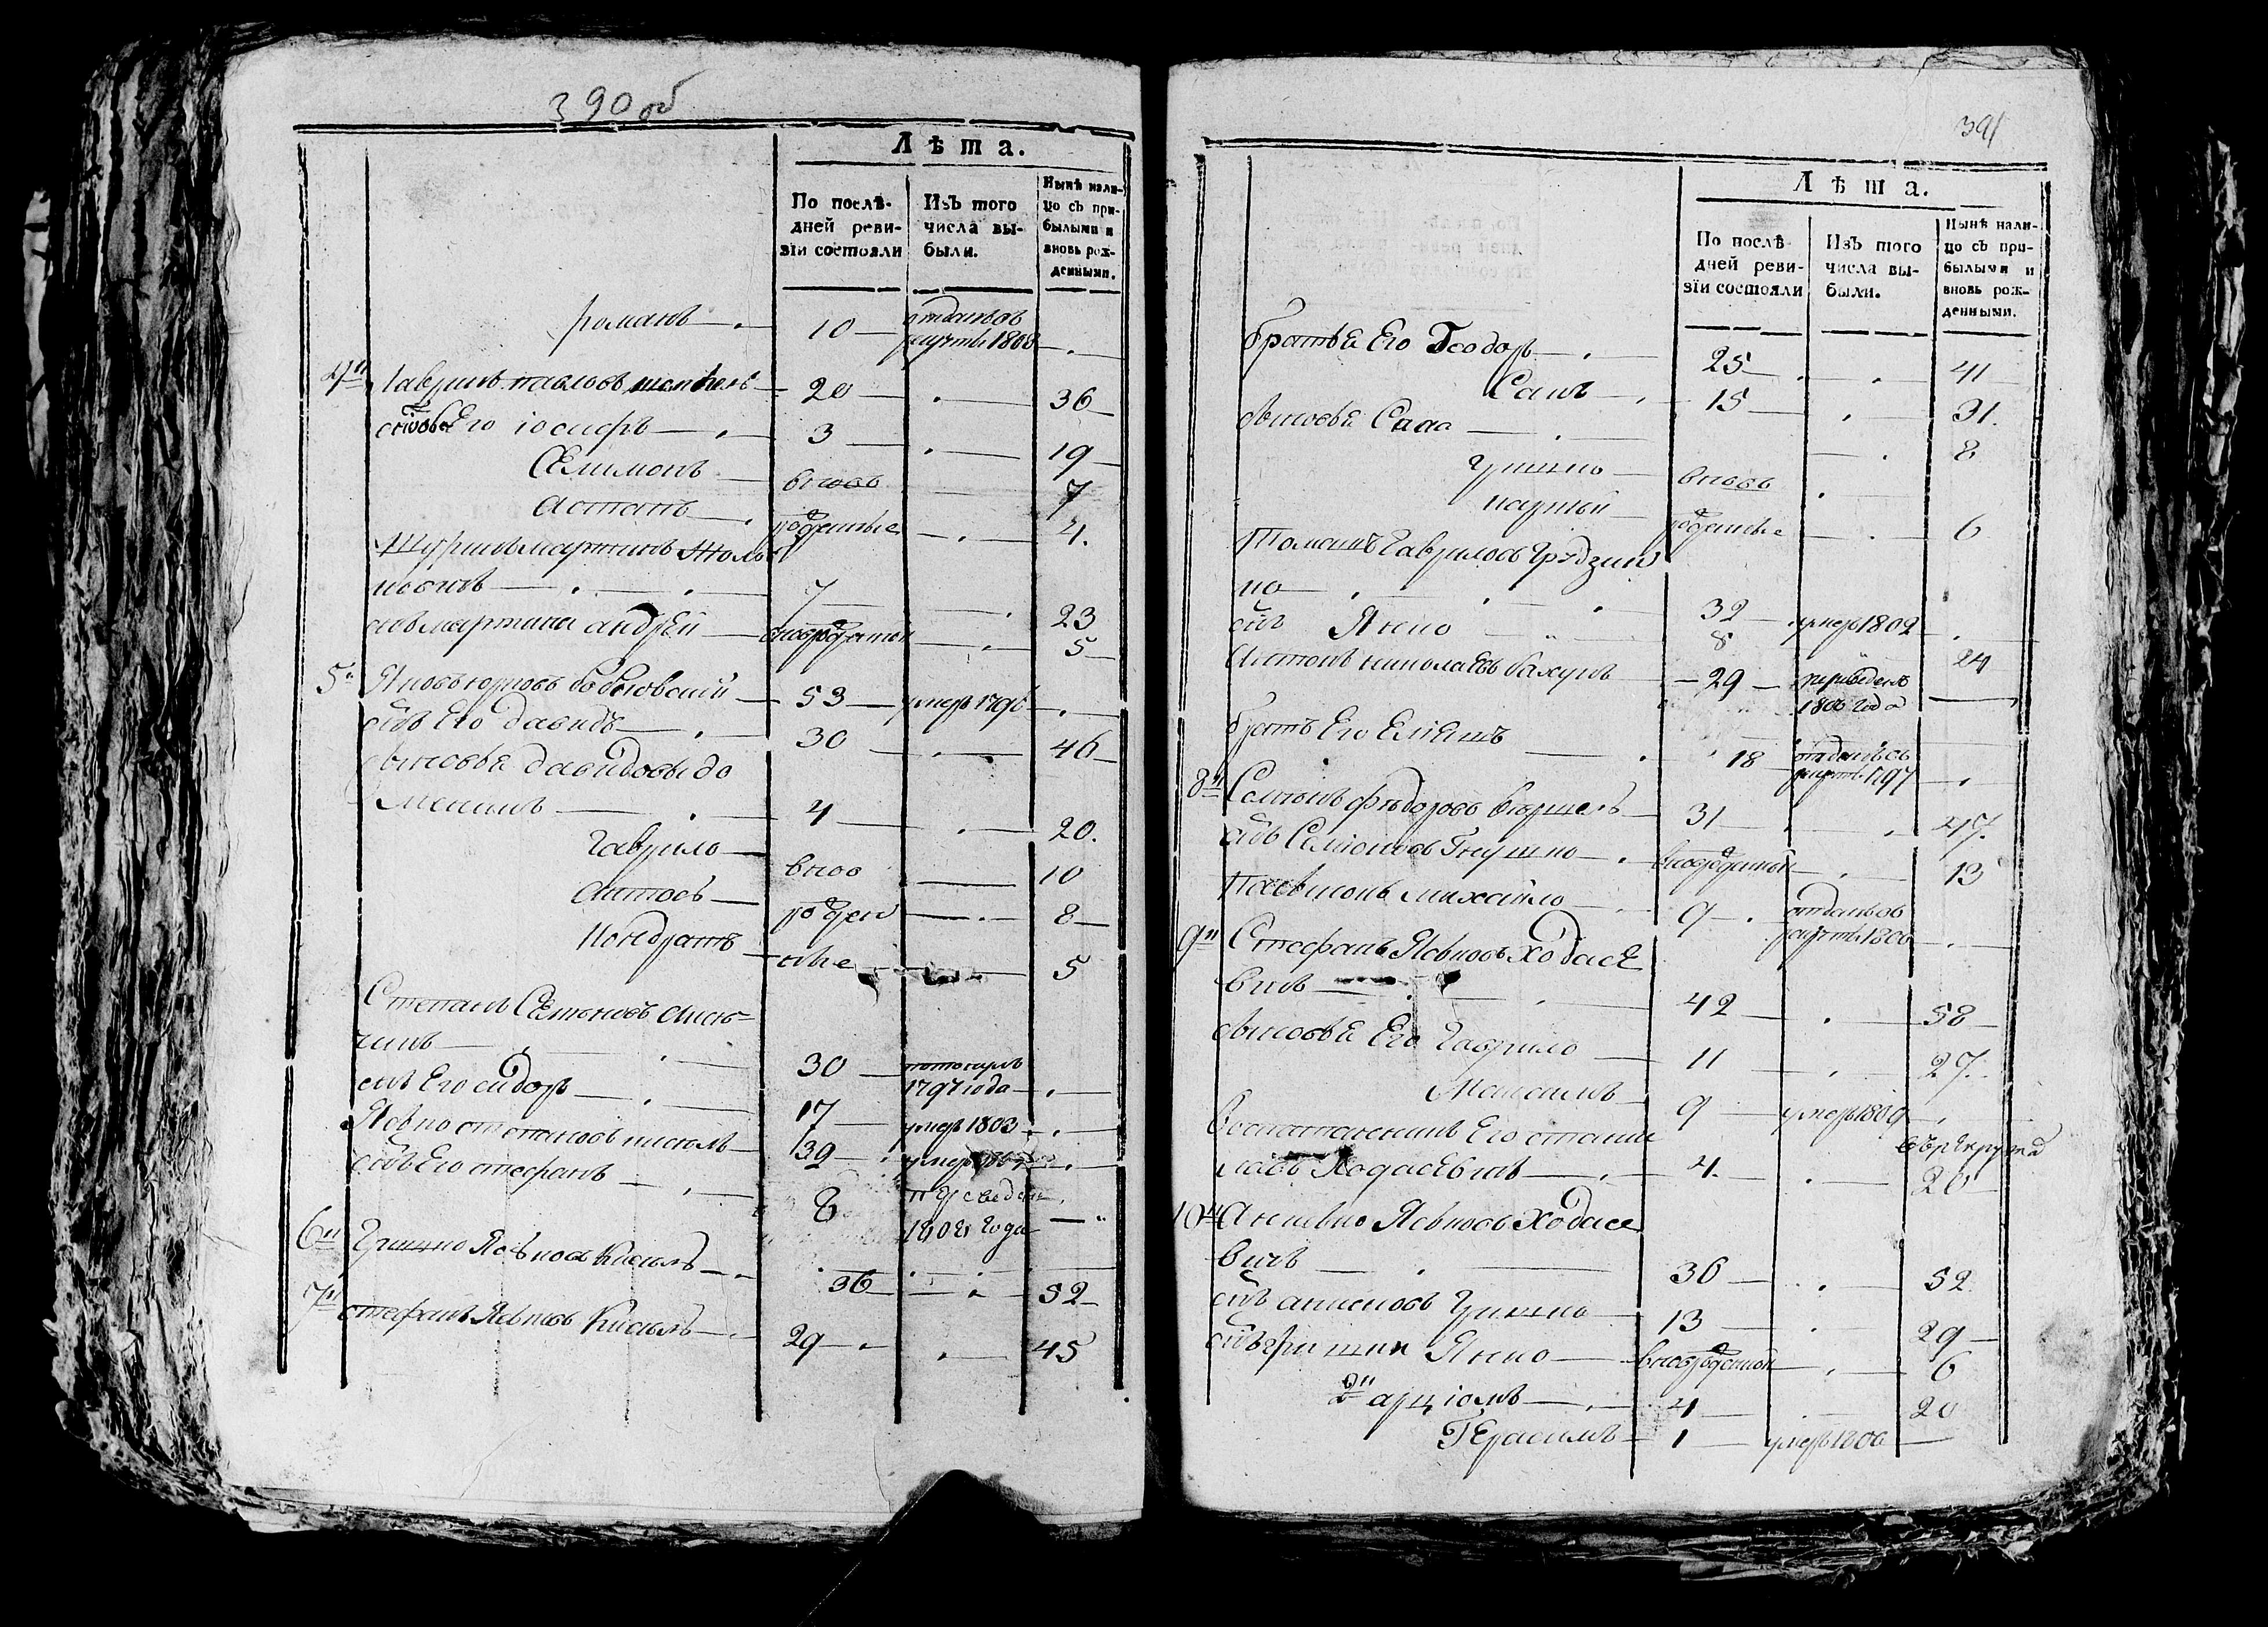 390 об
Лѣта.
По послѣдней ревизіи состояли
Изъ того числа выбыли.
Нынѣ налицо съ прибылыми и вновь рожденными.
романъ 10 отданъ въ рекруты 1808
4й Гаврила павловъ 20 36
сыновья Его іосифъ 3 19
Селимонъ вново 7
Астапъ рожденные 4.
мартинъ
7 23
сынъ мартина андрей вноврожденной 5
5й Яковъ юрковъ бобковский 53 умеръ 1796
сынъ Его давидъ 30 46
сыновья давидовы до
4 20.
Гаврило вново 10
Антось рожден 8
Кондратъ ные 5
Степанъ Семеновъ
30 1797 года
сынъ Его сидоръ 17 умеръ 1803
Яевко степановъ кисель 39 умеръ
сынъ Его стефанъ 8 переведен 1808 года
6й Гришко Яевковъ Кисель 36 52
7й стефанъ Яевковъ Кисель 29 45
391
Лѣта.
По послѣдней ревизіи состояли
Изъ того числа выбыли.
Нынѣ налицо съ прибылыми и вновь рожденными.
братья Его Ѳеодоръ 25 41
Сапъ 15 31.
сыновья Сапа 8
Гришко вново
карпей рожденные 6
Томашъ Гавриловъ Грудзин
ко 32 умеръ 1802
сынъ Янко 8 24
Антонъ николаевъ бакунъ 29 переведенъ 1806 года
братъ Его Еліяшъ 18 отданъ въ рекруты 1797
8й Семіонъ Фѣдоровъ 31 47.
сынъ Семіоновъ Гнушко вноврожденной 13
михайло 9 отданъ въ рекруты 1806
9й Стефанъ Яевковъ Ходасе
вичъ 42 58
сыновья Его Гаврило 11 27.
Максимъ 9 умеръ 1809
Воспитаникъ Его стани
славъ Ходасевичъ 4 20
10й Яевковъ Ходасе
вичъ 36 52
сынъ Гришко 13 29
сынъ гришки Янко вноврожденной 6
2й арціомъ 4 20
Герасимъ 1 умеръ 1806